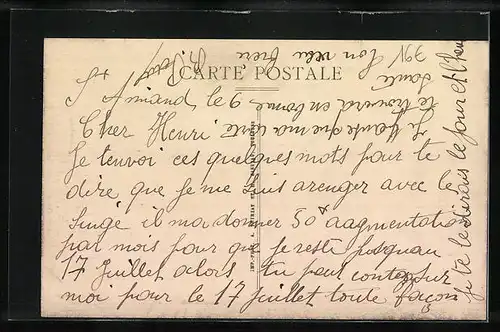 CARTE POSTALE
St Amand, le 6
Cher Henri
Je tenvoi ces quelques mots pour te
dire que je me suis arenger avec le
Singe il ma donner 50 d augmentatio
par mois pour que je reste jusquau
17 Juillet alors tu peux conter sur
moi pour le 17 Juillet toute façon
je te le dirais le jour et l'heu
Je souhaite que ma carte
te trouvera en bonne
santé
Ton vieu frère